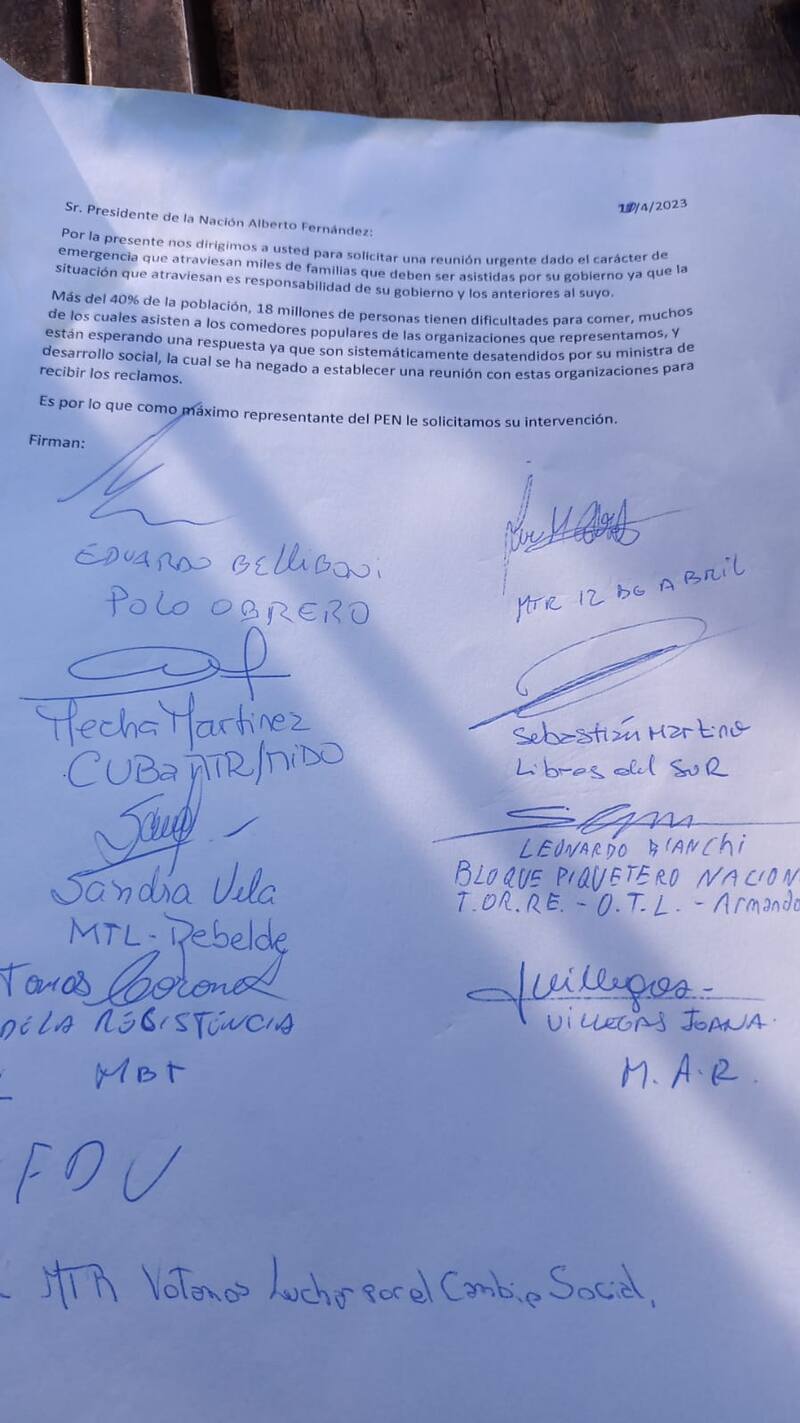 /4/2023
Sr. Presidente de la Nación Alberto Fernández:
Por la presente nos dirigimos a usted para solicitar una reunión urgente dado el carácter de
emergencia que atraviesan miles de familias que deben ser asistidas por su gobierno ya que la
situación que atraviesan es responsabilidad de su gobierno y los anteriores al suyo.
Más del 40% de la población, 18 millones de personas tienen dificultades para comer, muchos
de los cuales asisten a los comedores populares de las organizaciones que representamos, y
están esperando una respuesta ya que son sistemáticamente desatendidos por su ministra de
desarrollo social, la cual se ha negado a establecer una reunión con estas organizaciones para
recibir los reclamos.
Es por lo que como máximo representante del PEN le solicitamos su intervención.
Firman:
EDUARDO BELLIBONI
POLO OBRERO
MTR 12 DE ABRIL
Mecha Martinez
CUBa MTR/
Sebastián Martino
Libres del SUR
Sandra Vela
MTL-Rebelde
LEONARDO BIANCHI
BLOQUE PIQUETERO NACION
T.OR.RE. - O.T.L. - Armando
Coronel
DE LA RESISTENCIA
MBT
Villegas
VILLEGAS JOANA
M.A.R.
FDU
MTR Votamos Luchar por el Cambio Social,